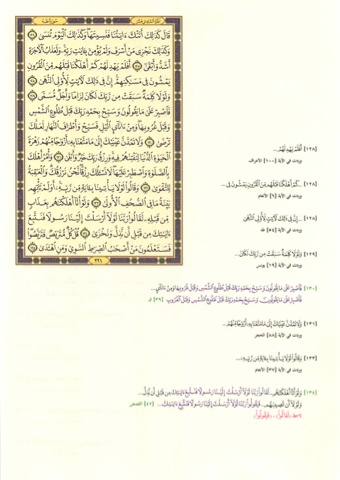 سورة طه
قَالَ كَذَٰلِكَ أَتَتْكَ ءَايَٰتُنَا فَنَسِيتَهَا وَكَذَٰلِكَ ٱلْيَوْمَ تُنسَىٰ ١٢٦
وَكَذَٰلِكَ نَجْزِى مَنْ أَسْرَفَ وَلَمْ يُؤْمِنۢ بِـَٔايَٰتِ رَبِّهِۦ وَلَعَذَابُ ٱلْءَاخِرَةِ
أَشَدُّ وَأَبْقَىٰٓ ١٢٧ أَفَلَمْ يَهْدِ لَهُمْ كَمْ أَهْلَكْنَا قَبْلَهُم مِّنَ ٱلْقُرُونِ
يَمْشُونَ فِى مَسَٰكِنِهِمْ إِنَّ فِى ذَٰلِكَ لَءَايَٰتٍ لِّأُو۟لِى ٱلنُّهَىٰ ١٢٨
وَلَوْلَا كَلِمَةٌ سَبَقَتْ مِن رَّبِّكَ لَكَانَ لِزَامًا وَأَجَلٌ مُّسَمًّى ١٢٩
فَٱصْبِرْ عَلَىٰ مَا يَقُولُونَ وَسَبِّحْ بِحَمْدِ رَبِّكَ قَبْلَ طُلُوعِ ٱلشَّمْسِ
وَقَبْلَ غُرُوبِهَا وَمِنْ ءَانَآئِ ٱلَّيْلِ فَسَبِّحْ وَأَطْرَافَ ٱلنَّهَارِ لَعَلَّكَ
تَرْضَىٰ ١٣٠ وَلَا تَمُدَّنَّ عَيْنَيْكَ إِلَىٰ مَا مَتَّعْنَا بِهِۦٓ أَزْوَٰجًا مِّنْهُمْ زَهْرَةَ
ٱلْحَيَوٰةِ ٱلدُّنْيَا لِنَفْتِنَهُمْ فِيهِ وَرِزْقُ رَبِّكَ خَيْرٌ وَأَبْقَىٰ ١٣١ وَأْمُرْ أَهْلَكَ
بِٱلصَّلَوٰةِ وَٱصْطَبِرْ عَلَيْهَا لَا نَسْـَٔلُكَ رِزْقًا نَّحْنُ نَرْزُقُكَ وَٱلْعَٰقِبَةُ
لِلتَّقْوَىٰ ١٣٢ وَقَالُوا۟ لَوْلَا يَأْتِينَا بِـَٔايَةٍ مِّن رَّبِّهِۦٓ أَوَلَمْ تَأْتِهِم
بَيِّنَةُ مَا فِى ٱلصُّحُفِ ٱلْأُولَىٰ ١٣٣ وَلَوْ أَنَّآ أَهْلَكْنَٰهُم بِعَذَابٍ
مِّن قَبْلِهِۦ لَقَالُوا۟ رَبَّنَا لَوْلَآ أَرْسَلْتَ إِلَيْنَا رَسُولًا فَنَتَّبِعَ
ءَايَٰتِكَ مِن قَبْلِ أَن نَّذِلَّ وَنَخْزَىٰ ١٣٤ قُلْ كُلٌّ مُّتَرَبِّصٌ فَتَرَبَّصُوا۟
فَسَتَعْلَمُونَ مَنْ أَصْحَٰبُ ٱلصِّرَٰطِ ٱلسَّوِىِّ وَمَنِ ٱهْتَدَىٰ ١٣٥
٣٢١
[١٢٨] أَفَلَمْ يَهْدِ لَهُمْ...
وردت في الآية [١٠٠] الأعراف
[١٢٨] ...كَمْ أَهْلَكْنَا قَبْلَهُم مِّنَ ٱلْقُرُونِ يَمْشُونَ فِى...
[١٢٨] ...إِنَّ فِى ذَٰلِكَ لَءَايَٰتٍ لِّأُو۟لِى ٱلنُّهَىٰ
وردت في الآية [٥٤] طه
[١٢٩] وَلَوْلَا كَلِمَةٌ سَبَقَتْ مِن رَّبِّكَ لَكَانَ...
وردت في الآية [١٩] يونس
[١٣٠] فَٱصْبِرْ عَلَىٰ مَا يَقُولُونَ وَسَبِّحْ بِحَمْدِ رَبِّكَ قَبْلَ طُلُوعِ ٱلشَّمْسِ وَقَبْلَ غُرُوبِهَا وَمِنْ ءَانَآئِ...
فَٱصْبِرْ عَلَىٰ مَا يَقُولُونَ وَسَبِّحْ بِحَمْدِ رَبِّكَ قَبْلَ طُلُوعِ ٱلشَّمْسِ وَقَبْلَ ٱلْغُرُوبِ [٣٩] ق
[١٣١] وَلَا تَمُدَّنَّ عَيْنَيْكَ إِلَىٰ مَا مَتَّعْنَا بِهِۦٓ أَزْوَٰجًا مِّنْهُمْ...
وردت في الآية [٨٨] الحجر
[١٣٣] وَقَالُوا۟ لَوْلَا يَأْتِينَا بِـَٔايَةٍ مِّن رَّبِّهِۦٓ...
وردت في الآية [٣٧] الأنعام
[١٣٤] وَلَوْ أَنَّآ أَهْلَكْنَٰهُم... لَقَالُوا۟ رَبَّنَا لَوْلَآ أَرْسَلْتَ إِلَيْنَا رَسُولًا فَنَتَّبِعَ ءَايَٰتِكَ مِن قَبْلِ أَن نَّذِلَّ...
وَلَوْلَآ أَن تُصِيبَهُم... فَيَقُولُوا۟ رَبَّنَا لَوْلَآ أَرْسَلْتَ إِلَيْنَا رَسُولًا فَنَتَّبِعَ ءَايَٰتِكَ... [٤٧] القصص